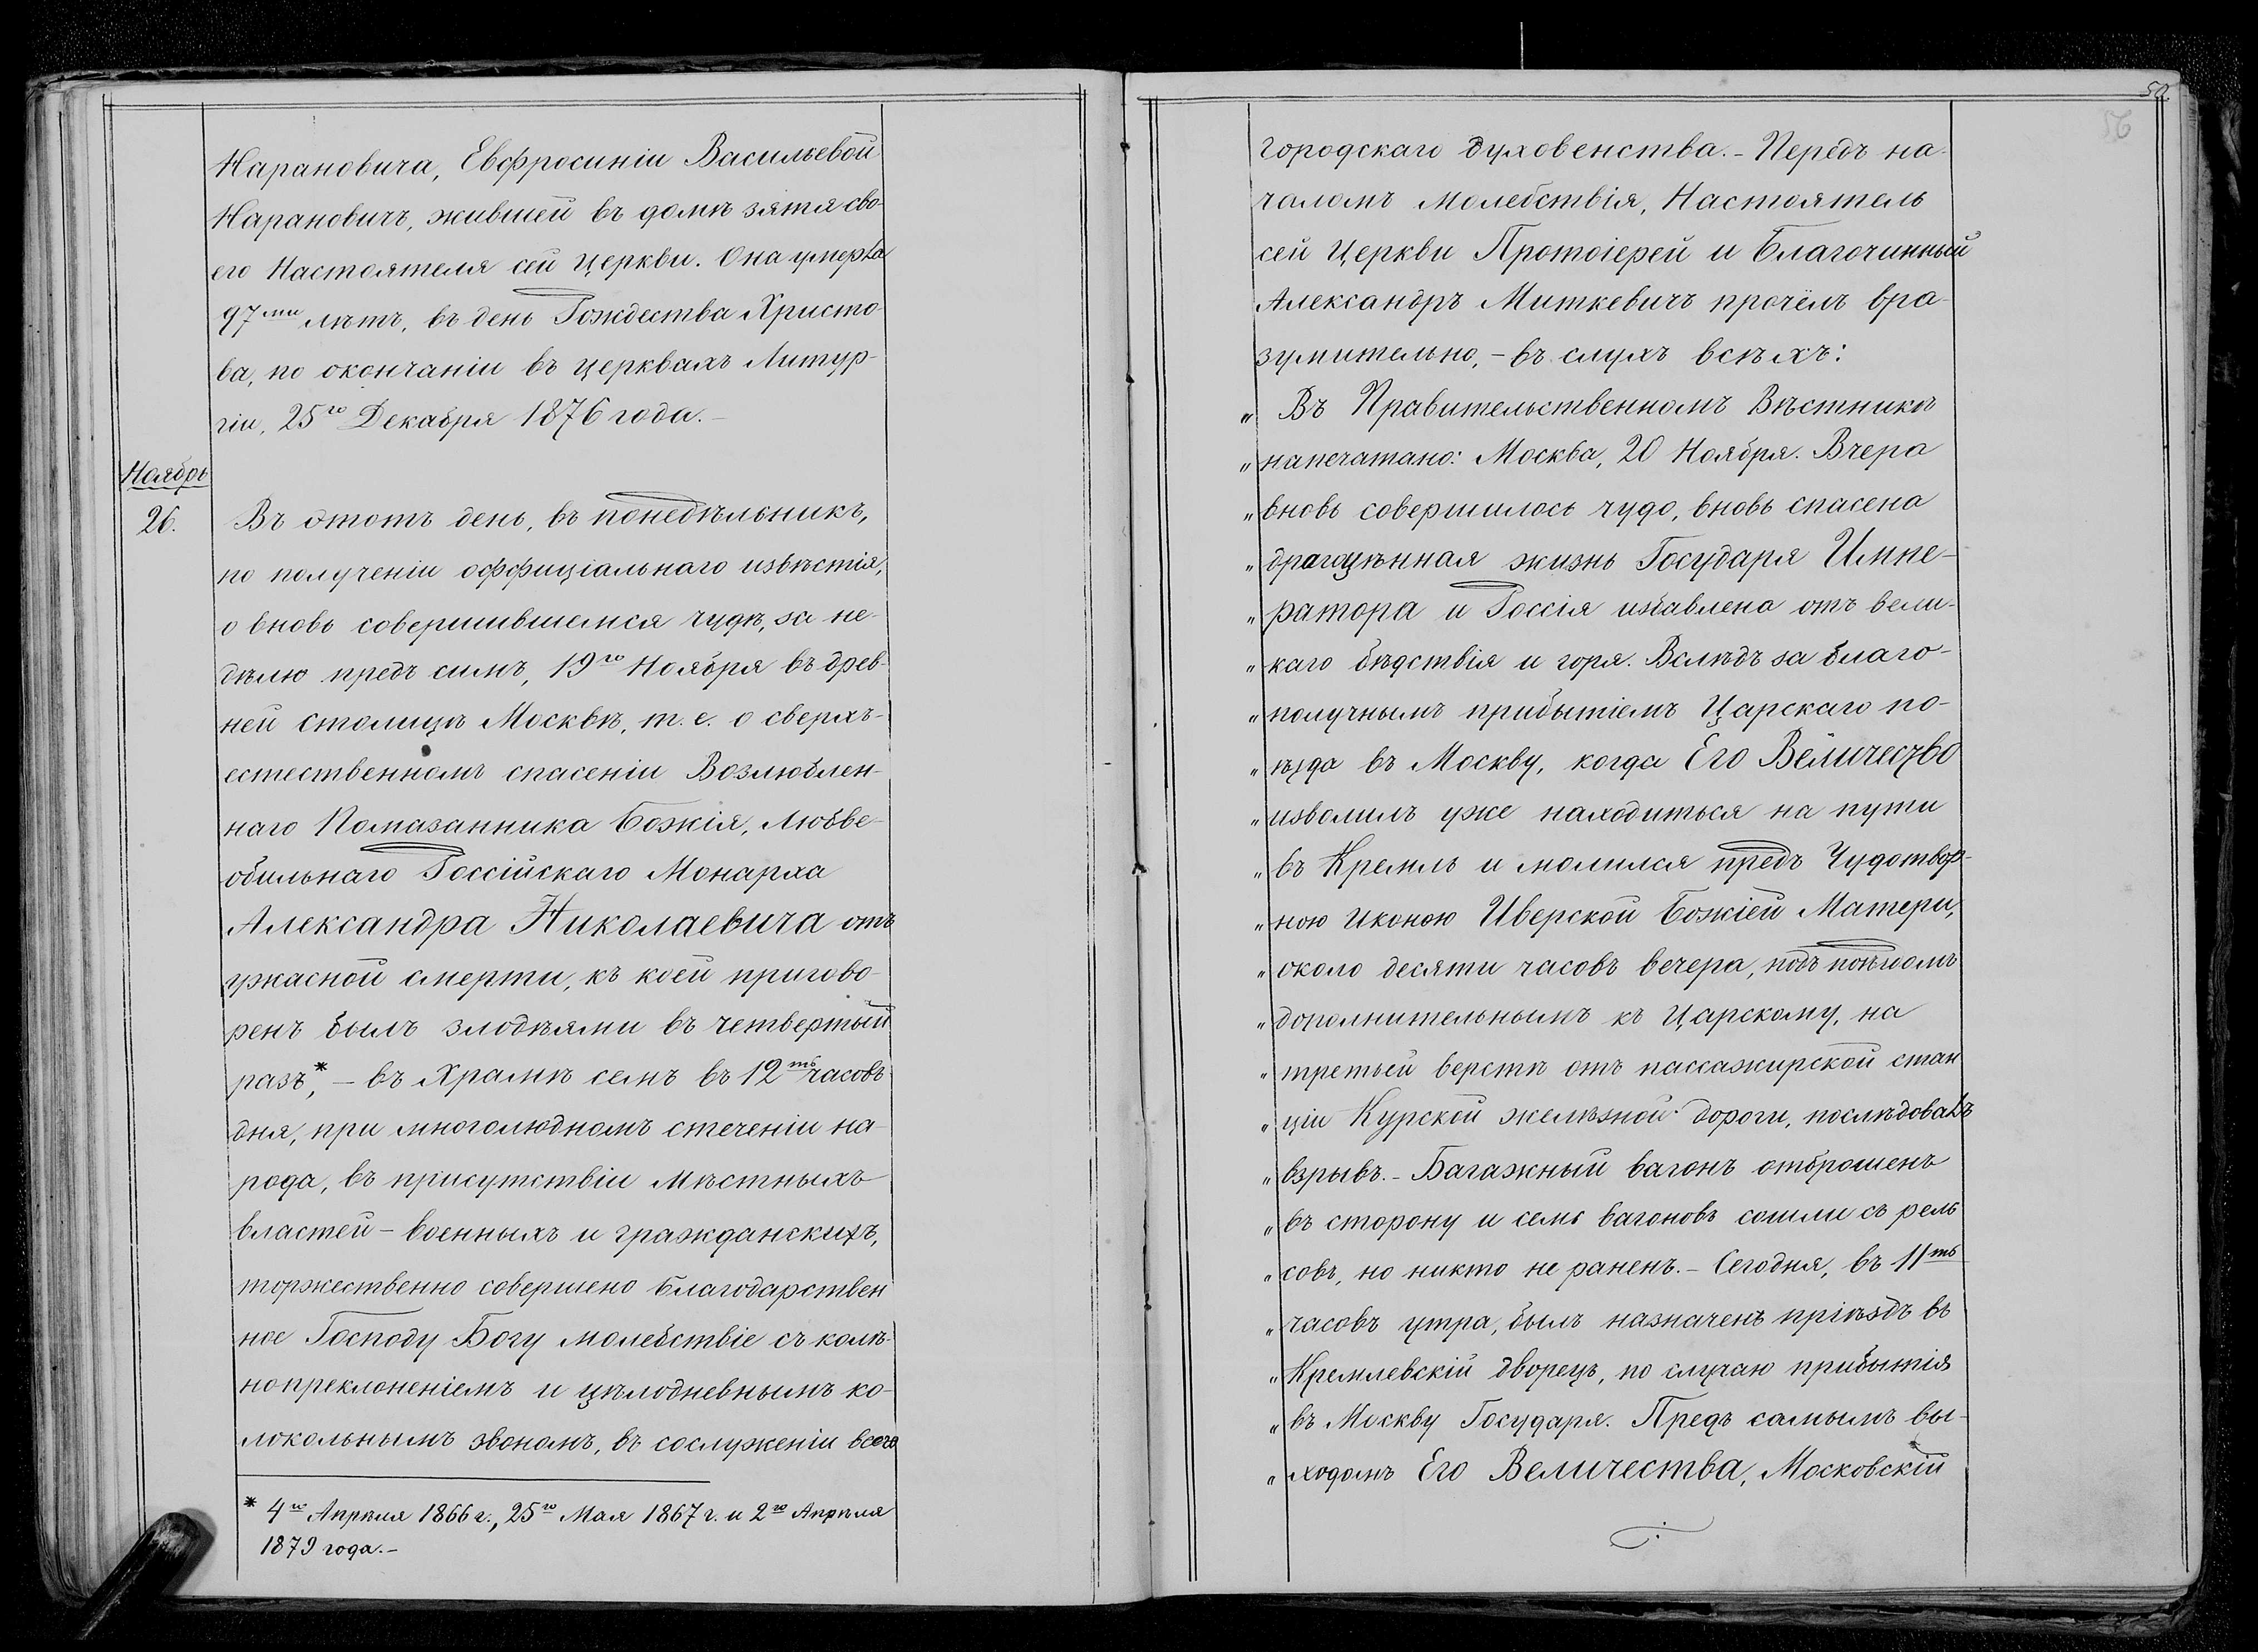 Нарановича, Евфросиніи Васильевой
Нарановичъ, жившей въ домѣ зятя сво-
его Настоятеля сей церкви. Она умерла
97ми лѣтъ, въ день Рождества Христо-
ва, по окончаніи въ церквахъ Литур-
гіи, 25го Декабря 1876 года.–
Ноябрь
26.
Въ этотъ день, въ понедѣльникъ,
по полученіи оффиціальнаго извѣстія,
о вновь совершившемся чудѣ, за не-
дѣлю предъ симъ, 19го Ноября въ древ-
ней столицѣ Москвѣ, т. е. о сверхъ-
естественномъ спасеніи Возлюблен-
наго Помазанника Божія, Любве-
обильнаго Россійскаго Монарха
Александра Николаевича отъ
ужасной смерти, къ коей пригово-
ренъ былъ злодѣями въ четвертый
разъ*, – въ Храмѣ семъ въ 12ть часовъ
дня, при многолюдномъ стеченіи на-
рода, въ присутствіи мѣстныхъ
властей – военныхъ и гражданскихъ,
торжественно совершено благодарствен
ное Господу Богу молебствіе съ колѣ-
нопреклоненіемъ и цѣлодневнымъ ко-
локольнымъ звономъ, въ сослуженіи всего
* 4го Апрѣля 1866 г., 25го Мая 1867 г. и 2го Апрѣля
1879 года.–
50
56
городскаго духовенства. – Передъ на-
чаломъ молебствія, Настоятель
сей Церкви Протоіерей и Благочинный
Александръ Миткевичъ прочёлъ вра-
зумительно, – въ слухъ всѣхъ:
„ Въ Правительственномъ Вѣстникѣ
„ напечатано: Москва, 20 Ноября. Вчера
„ вновь совершилось чудо, вновь спасена
„ драгоцѣнная жизнь Государя Импе-
„ ратора и Россія избавлена отъ вели-
„ каго бѣдствія и горя. Вслѣдъ за благо-
„ получнымъ прибытіемъ Царскаго по-
„ ѣзда въ Москву, когда Его Величество
„ изволилъ уже находиться на пути
„ въ Кремль и молился предъ Чудотвор-
„ ною Иконою Иверской Божіей Матери,
„ около десяти часовъ вечера, подъ поѣздомъ
„ дополнительнымъ къ Царскому, на
„ третьей верстѣ отъ пассажирской стан
„ ціи Курской желѣзной дороги, послѣдовалъ
„ взрывъ. – Багажный вагонъ отброшенъ
„ въ сторону и семь вагоновъ сошли съ рель
„ совъ, но никто не раненъ. – Сегодня, въ 11ть
„ часовъ утра, былъ назначенъ пріѣздъ въ
„ Кремлевскій дворецъ, по случаю прибытія
„ въ Москву Государя. Предъ самымъ вы-
„ ходомъ Его Величества, Московскій